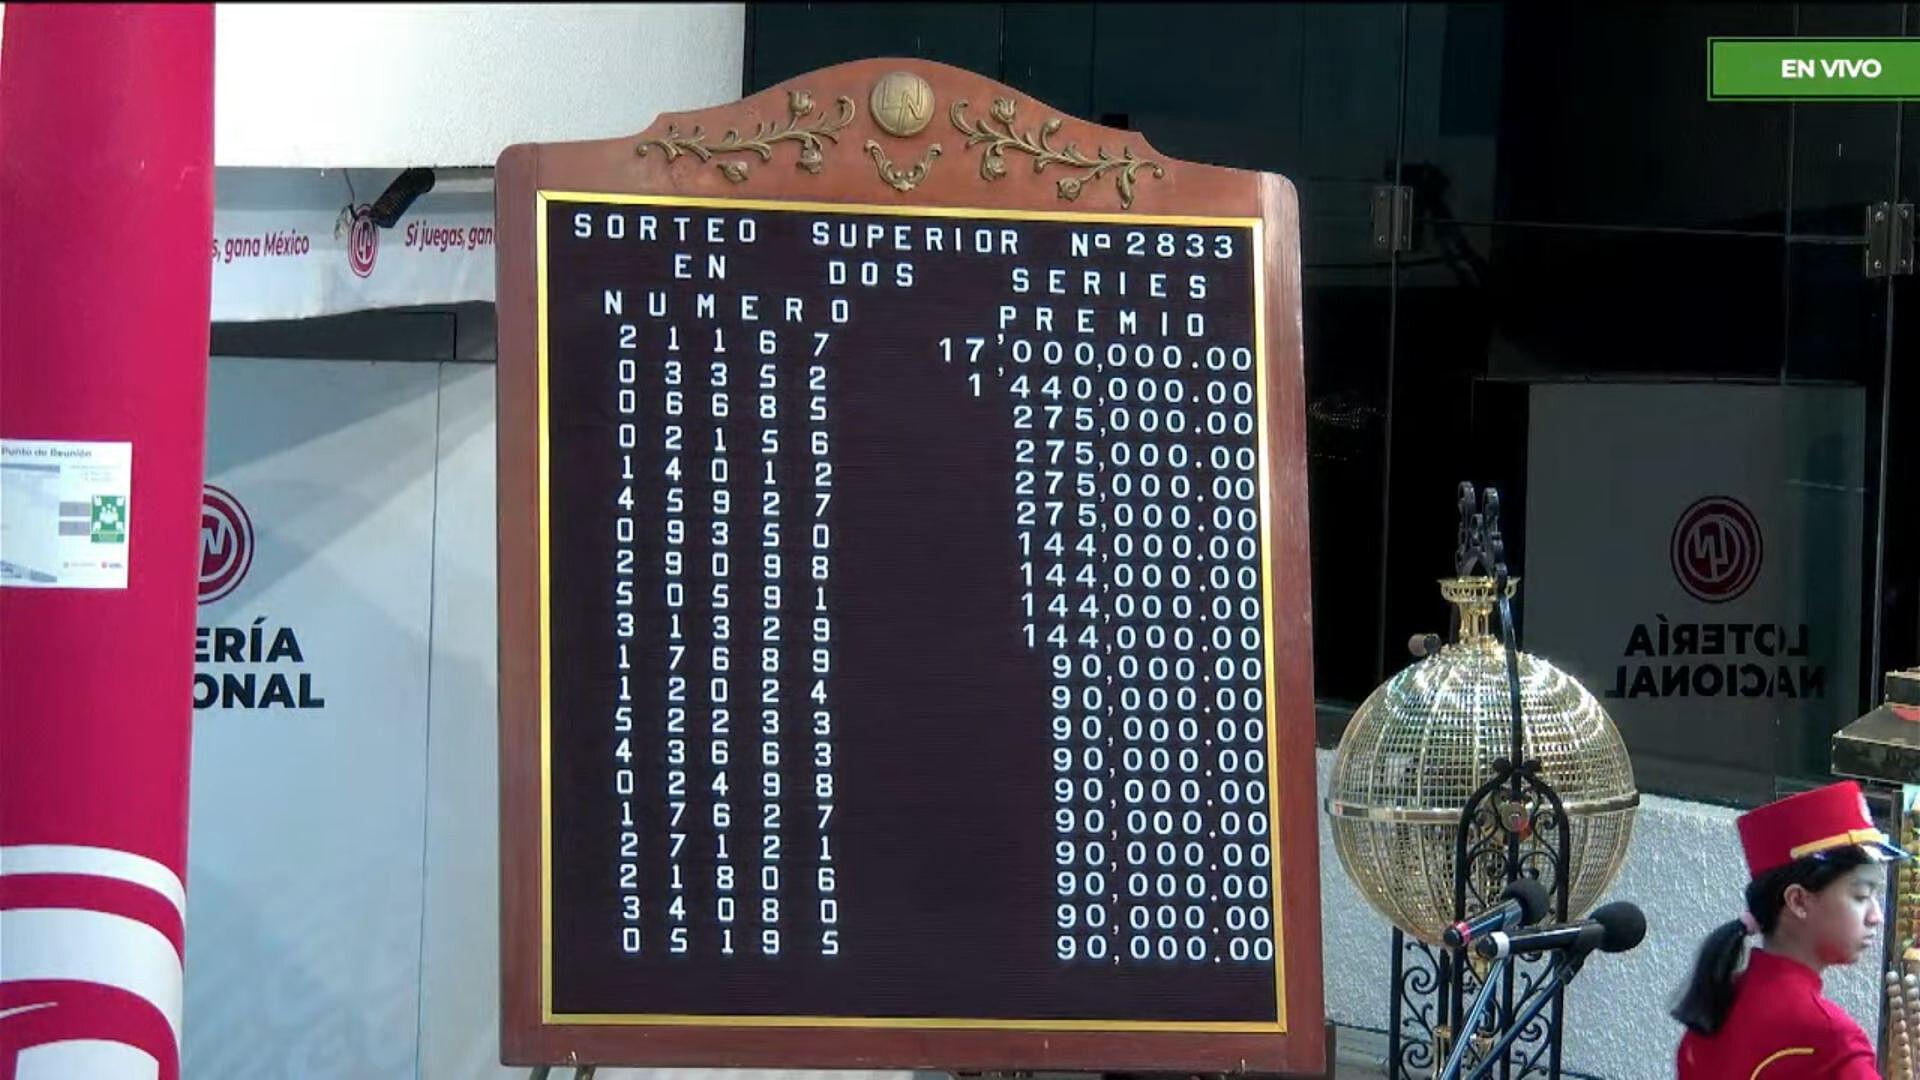 EN VIVO
s, gana México
Si juegas, gan
SORTEO SUPERIOR Nª2833
EN DOS SERIES
NUMERO PREMIO
21167 17'000,000.00
03352 1'440,000.00
06685 275,000.00
02156 275,000.00
14012 275,000.00
45927 275,000.00
09350 144,000.00
29098 144,000.00
50591 144,000.00
31329 144,000.00
17689 90,000.00
12024 90,000.00
52233 90,000.00
43663 90,000.00
02498 90,000.00
17627 90,000.00
27121 90,000.00
21806 90,000.00
34080 90,000.00
05195 90,000.00
Punto de Reunión
ERÍA
ONAL
LOTERÍA
NACIONAL